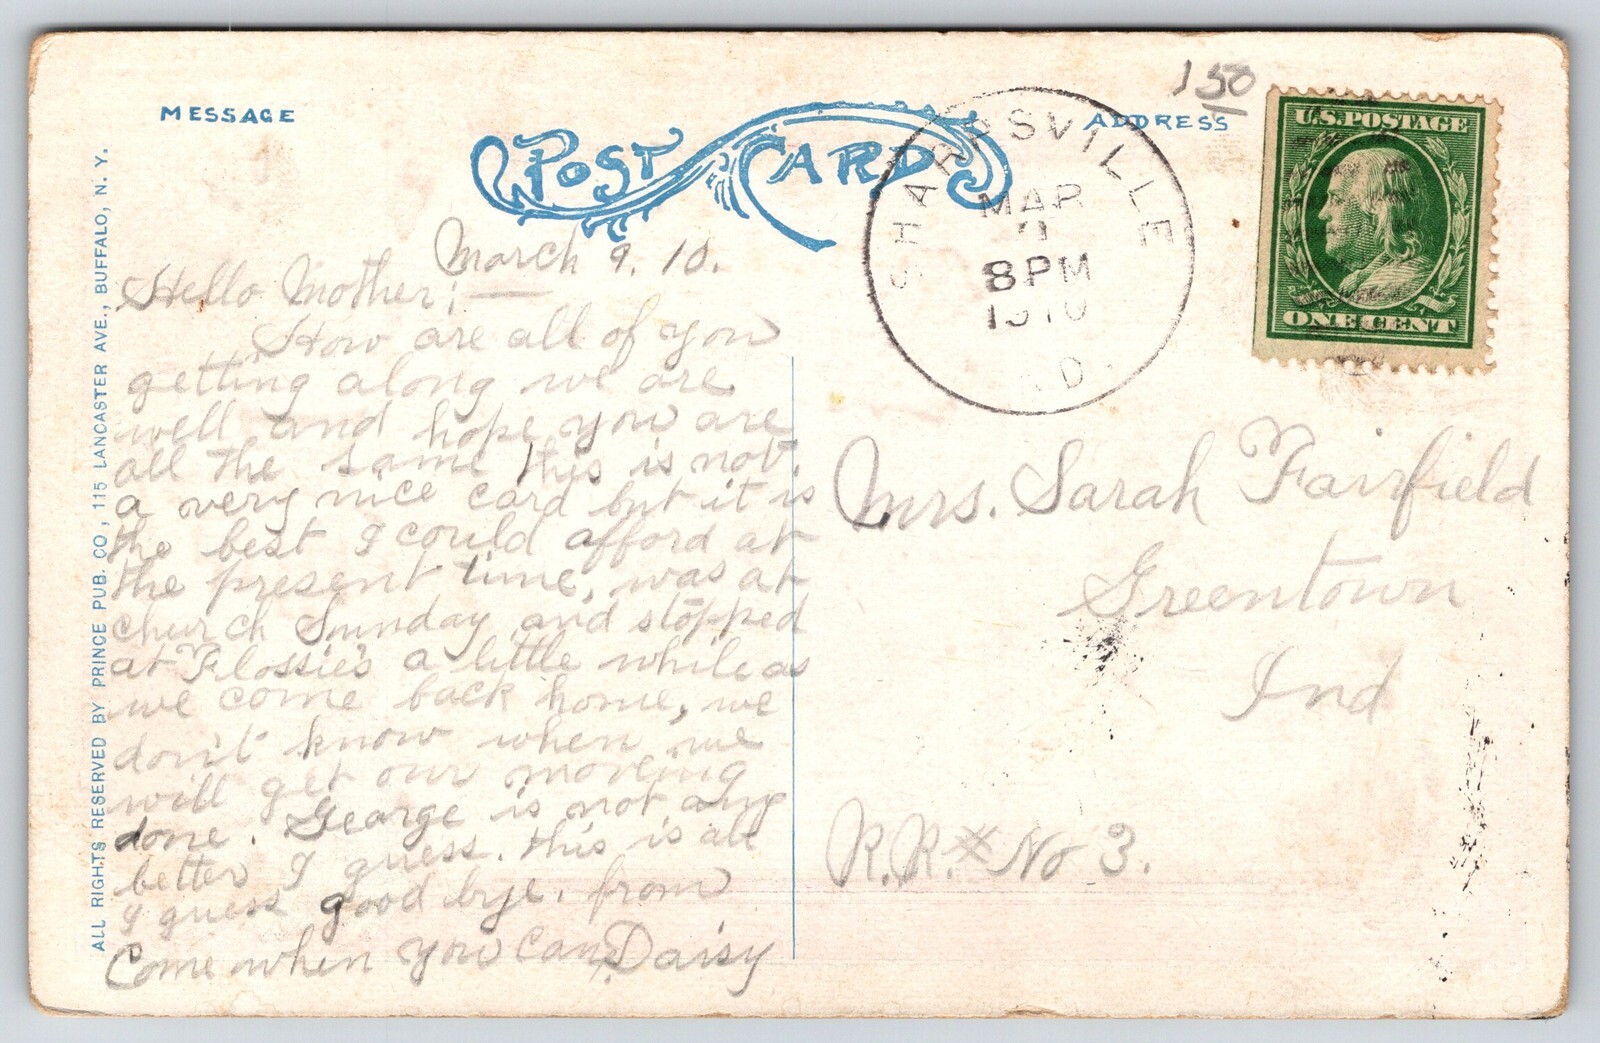 MESSAGE
POST CARD
ADDRESS
150
U.S.POSTAGE
ONE CENT
SHARPSVILLE
MAR
8 PM
1910
D.
ALL RIGHTS RESERVED BY PRINCE PUB. CO., 115 LANCASTER AVE., BUFFALO, N. Y.
March 9. 10.
Hello Mother;—
How are all of you
getting along we are
well and hope you are
all the same this is not
a very nice card but it is
the best I could afford at
the present time, was at
church Sunnday and stopped
at Flossie's a little while as
we come back home, we
don't know when we
will get our moveing
done. George is not any
better I guess. this is all
I guess good bye. from
Come when you can. Daisy
Mrs. Sarah Fairfield
Greentown
Ind
R.R. # No 3.